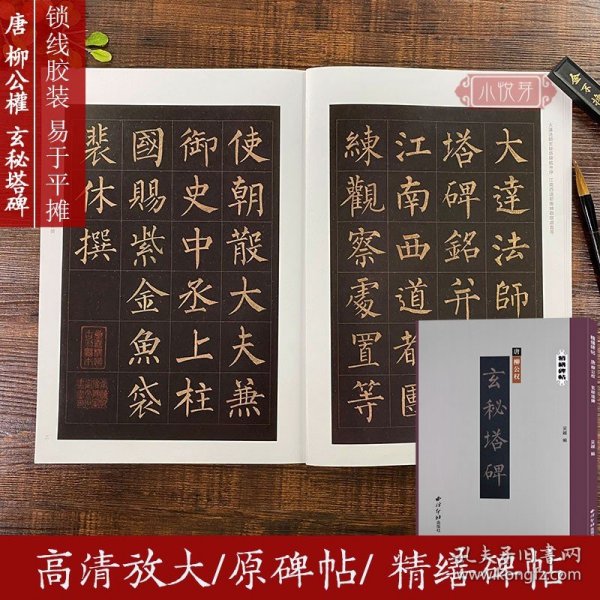 唐 柳公權 玄秘塔碑
锁线胶装 易于平摊
小悦芽
金不
大達法師
塔碑銘并
江南西道都團
練觀察處置等
使朝散大夫兼
御史中丞上柱
國賜紫金魚袋
裴休撰
精缮碑帖
唐 柳公权
玄秘塔碑
高清放大/原碑帖/ 精缮碑帖
孔夫子旧书网